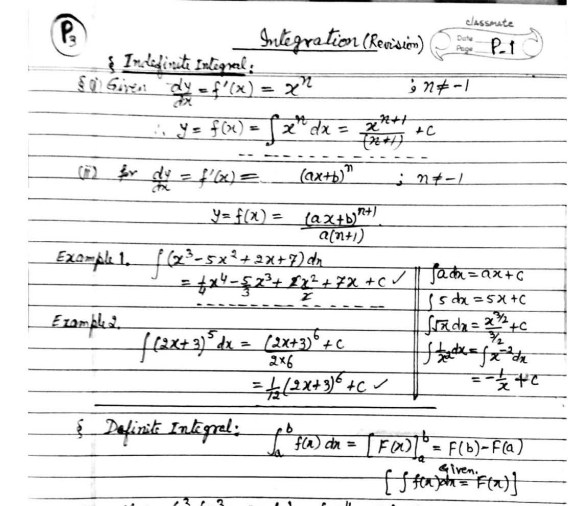 P3
classmate
Date
Page P-1
Integration (Revision)
§ Indefinite Integral:
§ (i) Given dy/dx = f'(x) = x^n ; n ≠ -1
∴ y = f(x) = ∫ x^n dx = x^(n+1)/(n+1) + c
(ii) for dy/dx = f'(x) = (ax+b)^n ; n ≠ -1
y = f(x) = (ax+b)^(n+1)/a(n+1)
Example 1. ∫ (x³ - 5x² + 2x + 7) dx
= 1/4 x⁴ - 5/3 x³ + 2x²/2 + 7x + c ✓
∫ a dx = ax + c
∫ 5 dx = 5x + c
∫ √x dx = x^(3/2)/(3/2) + c
∫ 1/x² dx = ∫ x^-2 dx
= -1/x + c
Example 2.
∫ (2x+3)⁵ dx = (2x+3)⁶/(2×6) + c
= 1/12 (2x+3)⁶ + c ✓
§ Definite Integral: ∫_a^b f(x) dx = [F(x)]_a^b = F(b) - F(a)
Given.
[∫ f(x) dx = F(x)]